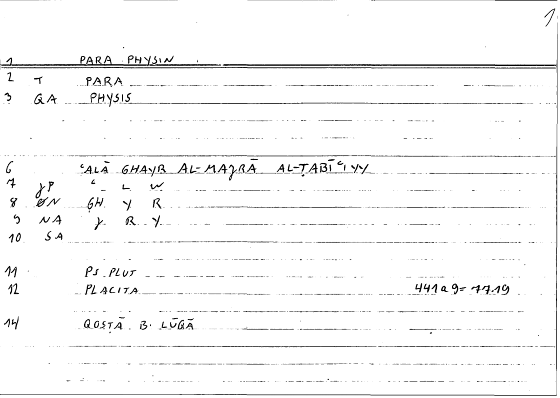 1
1 PARA PHYSIN
2 T PARA
3 QA PHYSIS
6 ʿALĀ GHAYR AL-MAJRĀ AL-ṬABĪʿIYY
7 JP ʿ L W
8 ØN GH Y R
9 NA J R Y
10 SA
11 PS PLUT
12 PLACITA 441a9=7719
14 QOSTĀ B. LŪQĀ